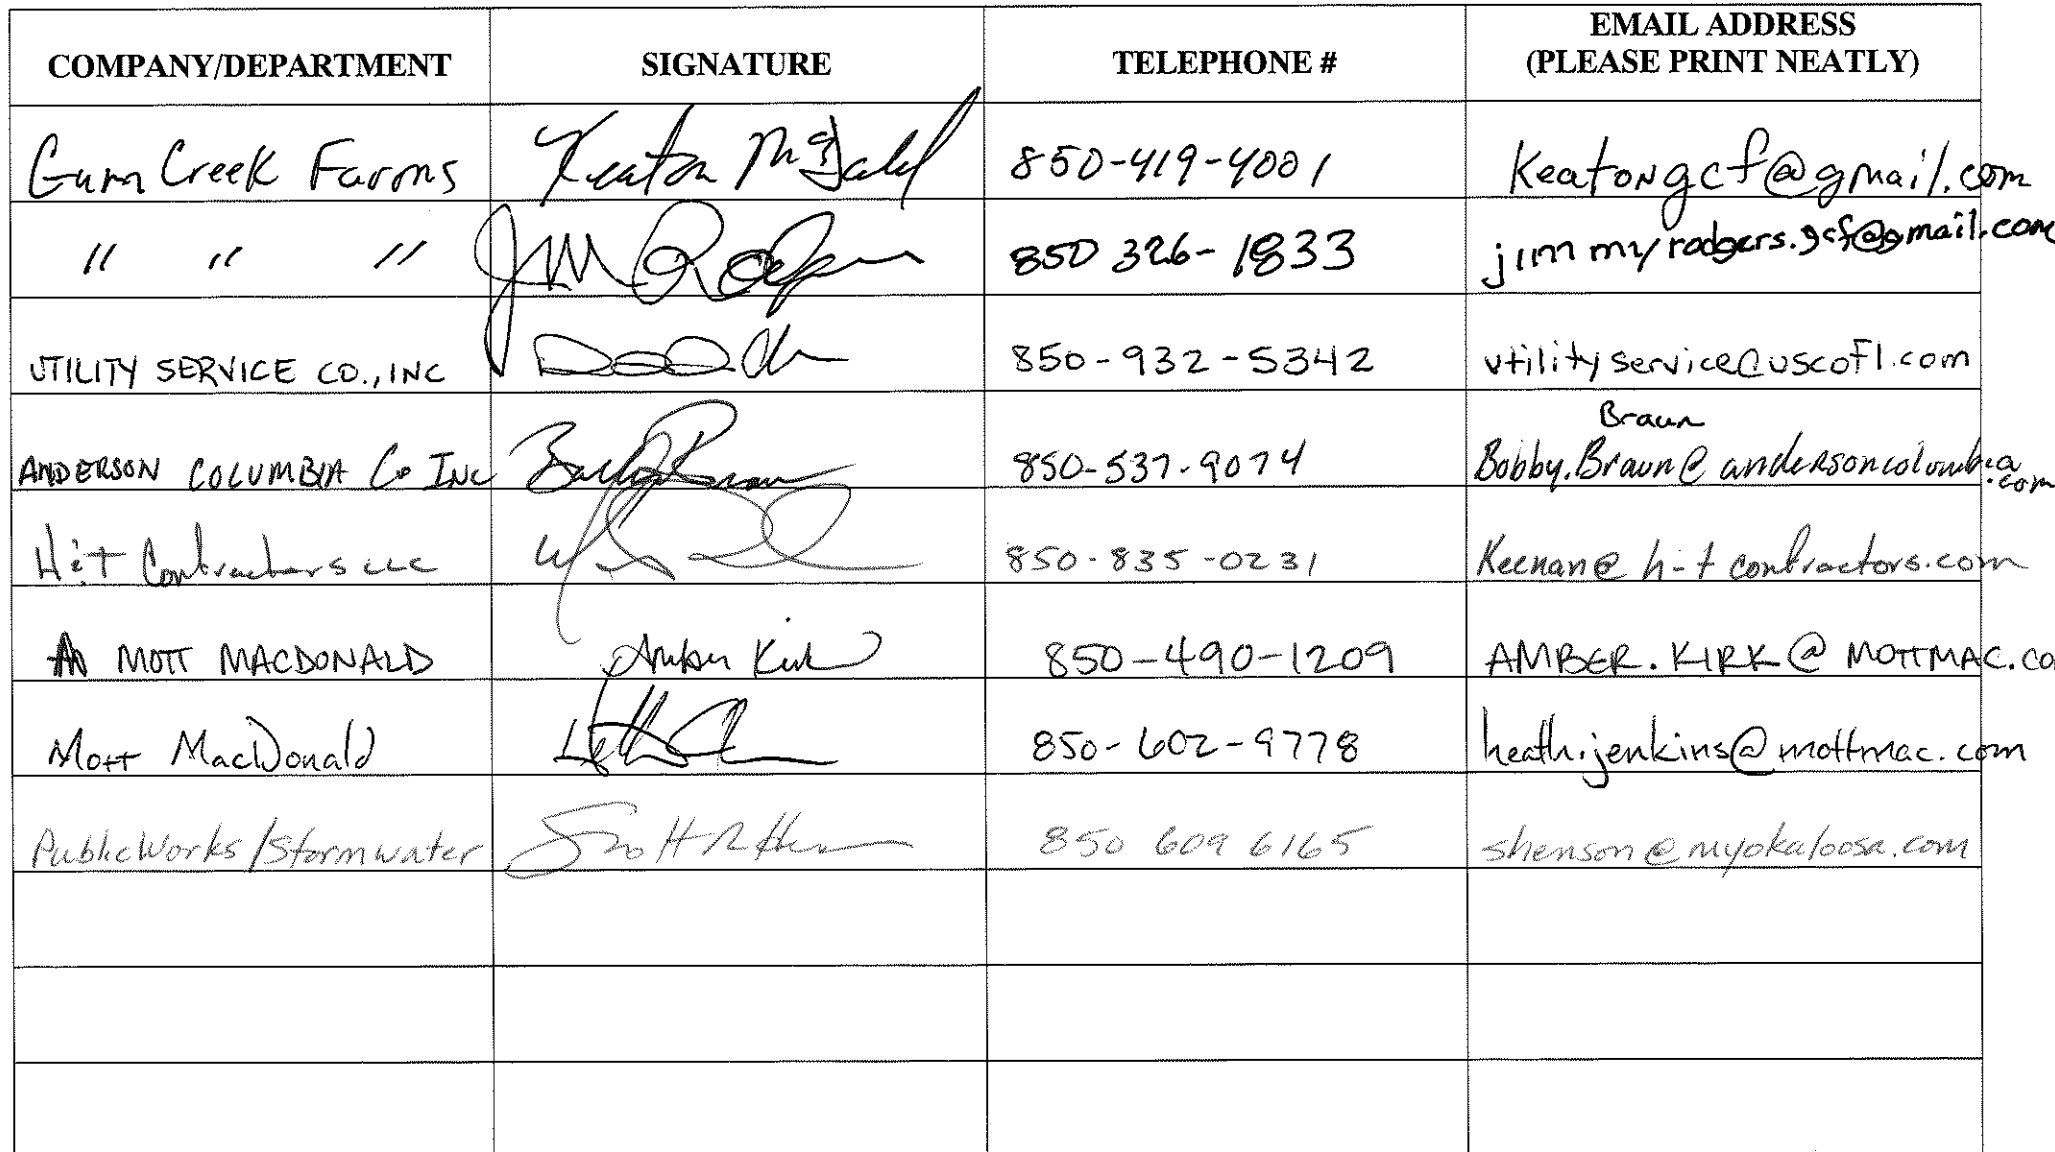 COMPANY/DEPARTMENT SIGNATURE TELEPHONE # EMAIL ADDRESS
(PLEASE PRINT NEATLY)
Gum Creek Farms Keaton 850-419-4001 Keatongcf@gmail.com
" " " 850 326-1833 jimmyrodgers.gcf@gmail.com
UTILITY SERVICE CO., INC 850-932-5342 utilityservice@uscofl.com
Braun
ANDERSON COLUMBIA Co INC Bobby Braun 850-537-9074 Bobby.Braun@andersoncolumbia.com
H&T Contractors LLC 850-835-0231 Keenan@h-tcontractors.com
MOTT MACDONALD Amber Kirk 850-490-1209 AMBER.KIRK@MOTTMAC.CO
Mott MacDonald 850-602-9778 heath.jenkins@mottmac.com
PublicWorks/Stormwater Scott R 850 609 6165 shenson@myokaloosa.com